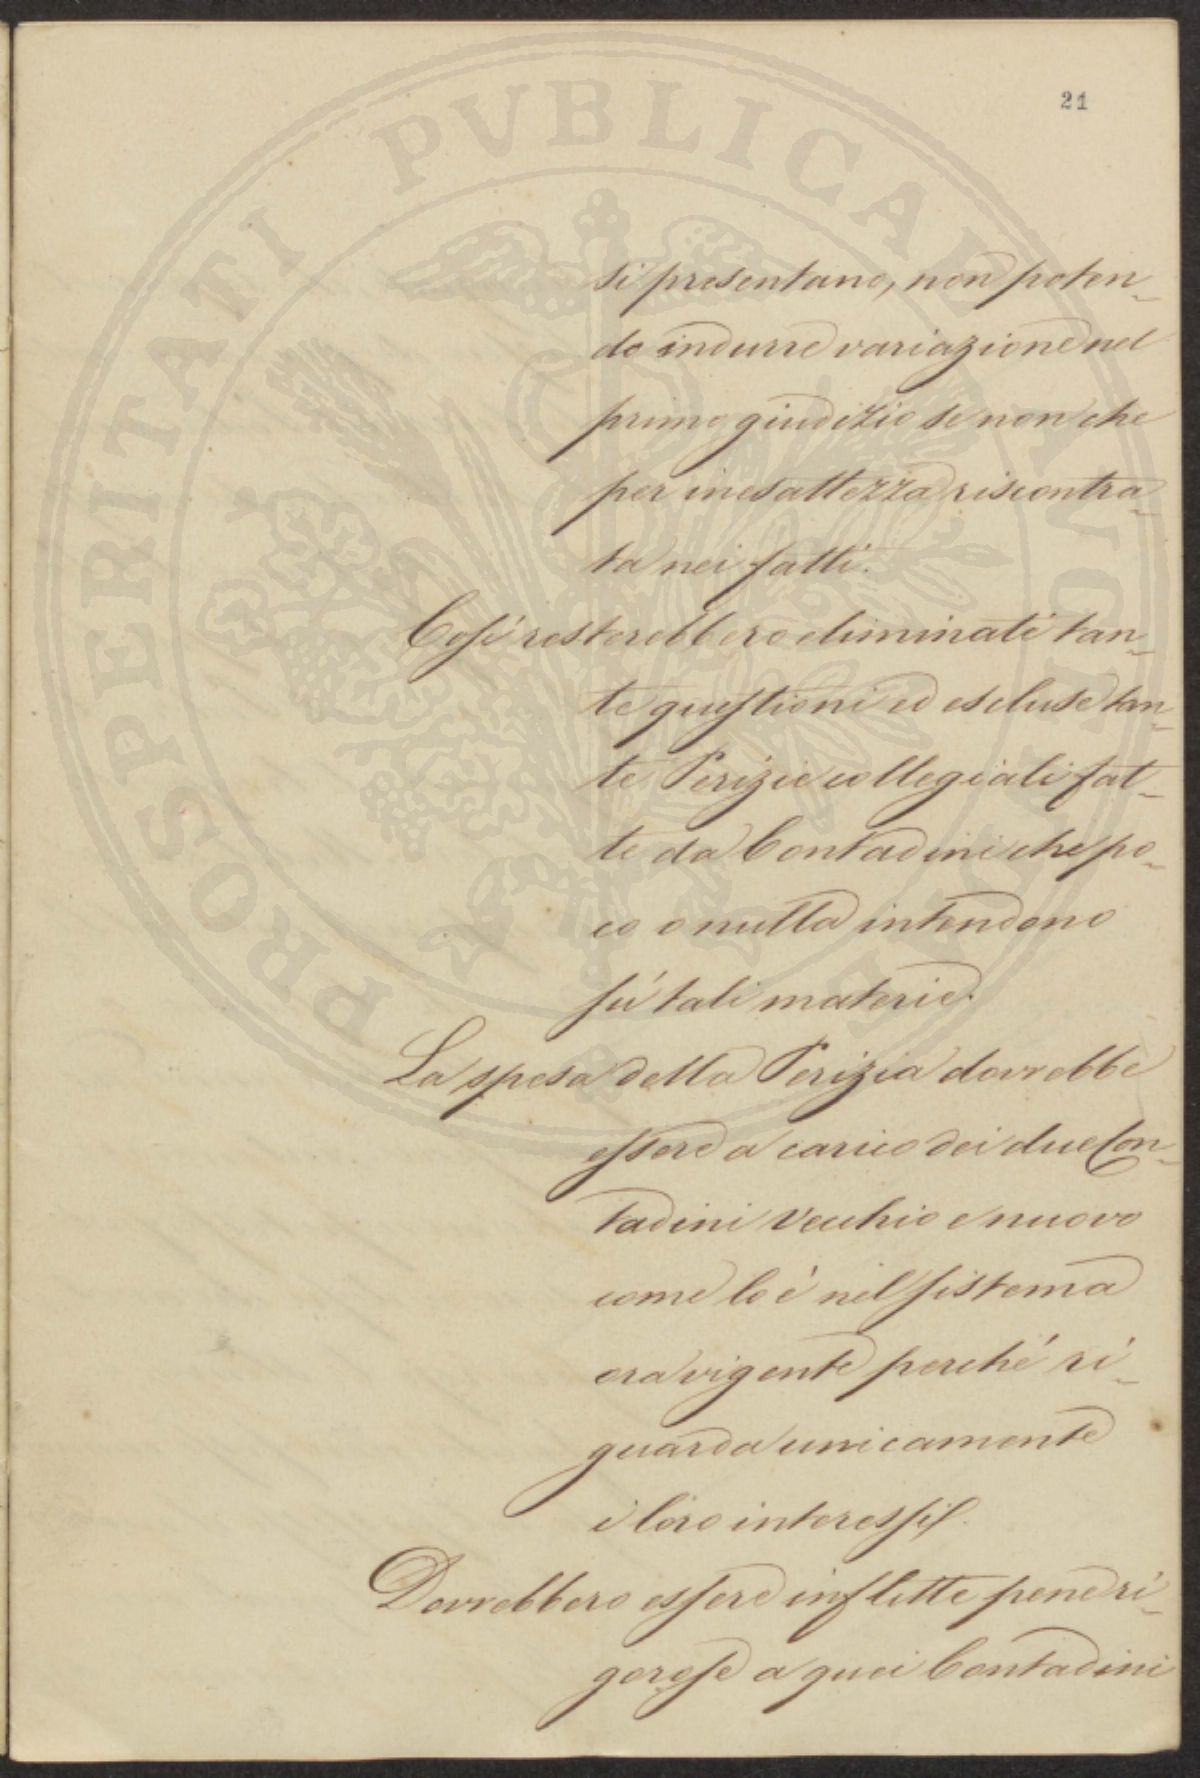 21
PROSPERITATI PVBLICAE
si presentano, non poten-
do indurre variazione nel
primo giudizio se non che
per inesattezza riscontra-
ta nei fatti.
Così resterebbero eliminati tan-
te questioni ed escluse tan-
te Perizie collegiali fat-
te da Contadini che po-
co o nulla intendono
sù tali materie.
La spesa della Perizia dovrebbe
essere a carico dei due Con-
tadini vecchio e nuovo
come lo è nel sistema
ora vigente perché ri-
guarda unicamente
i loro interessi.
Dovrebbero essere inflitte pene ri-
gorose a quei Contadini